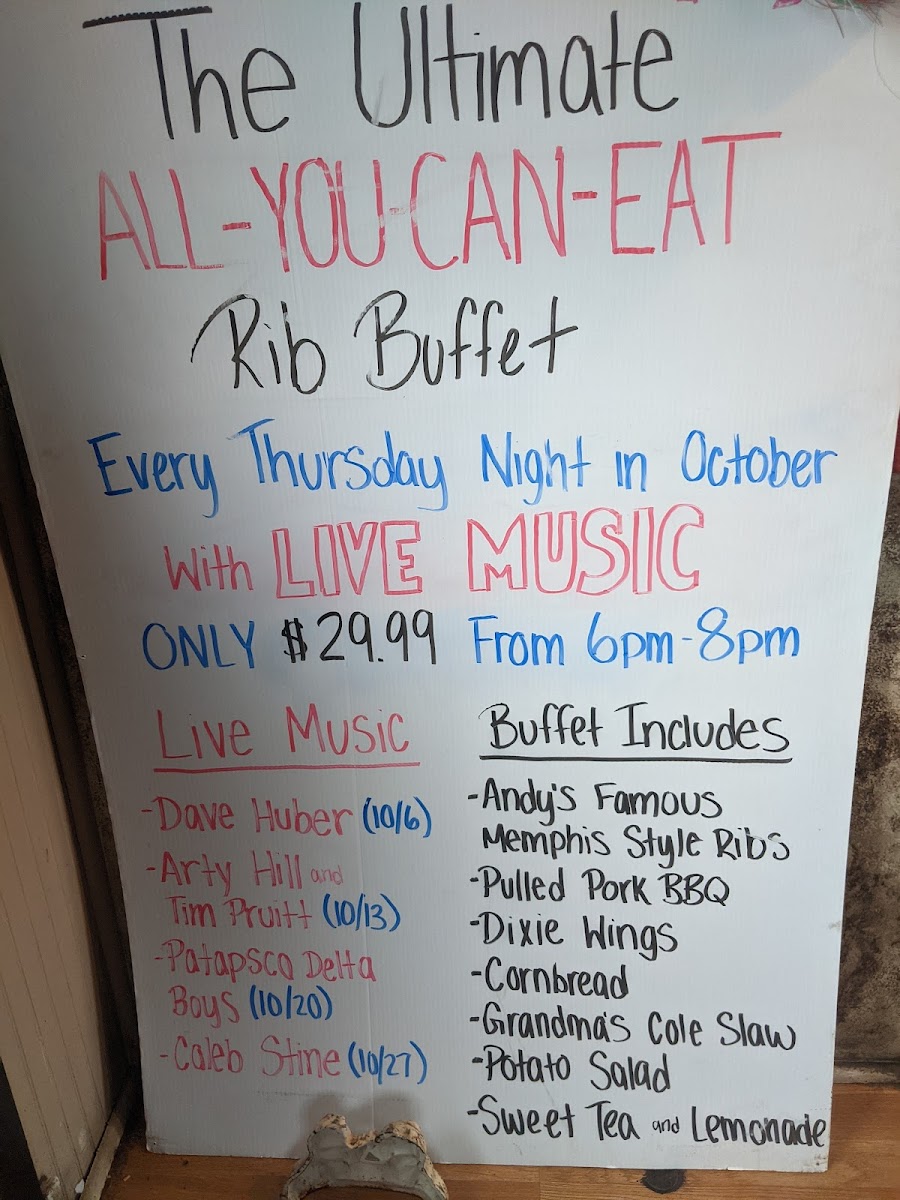 The Ultimate
ALL-YOU-CAN-EAT
Rib Buffet
Every Thursday Night in October
With LIVE MUSIC
ONLY $29.99 From 6pm-8pm
Live Music
-Dave Huber (10/6)
-Arty Hill and
Tim Pruitt (10/13)
-Patapsco Delta
Boys (10/20)
-Caleb Stine (10/27)
Buffet Includes
-Andy's Famous
Memphis Style Ribs
-Pulled Pork BBQ
-Dixie Wings
-Cornbread
-Grandma's Cole Slaw
-Potato Salad
-Sweet Tea and Lemonade